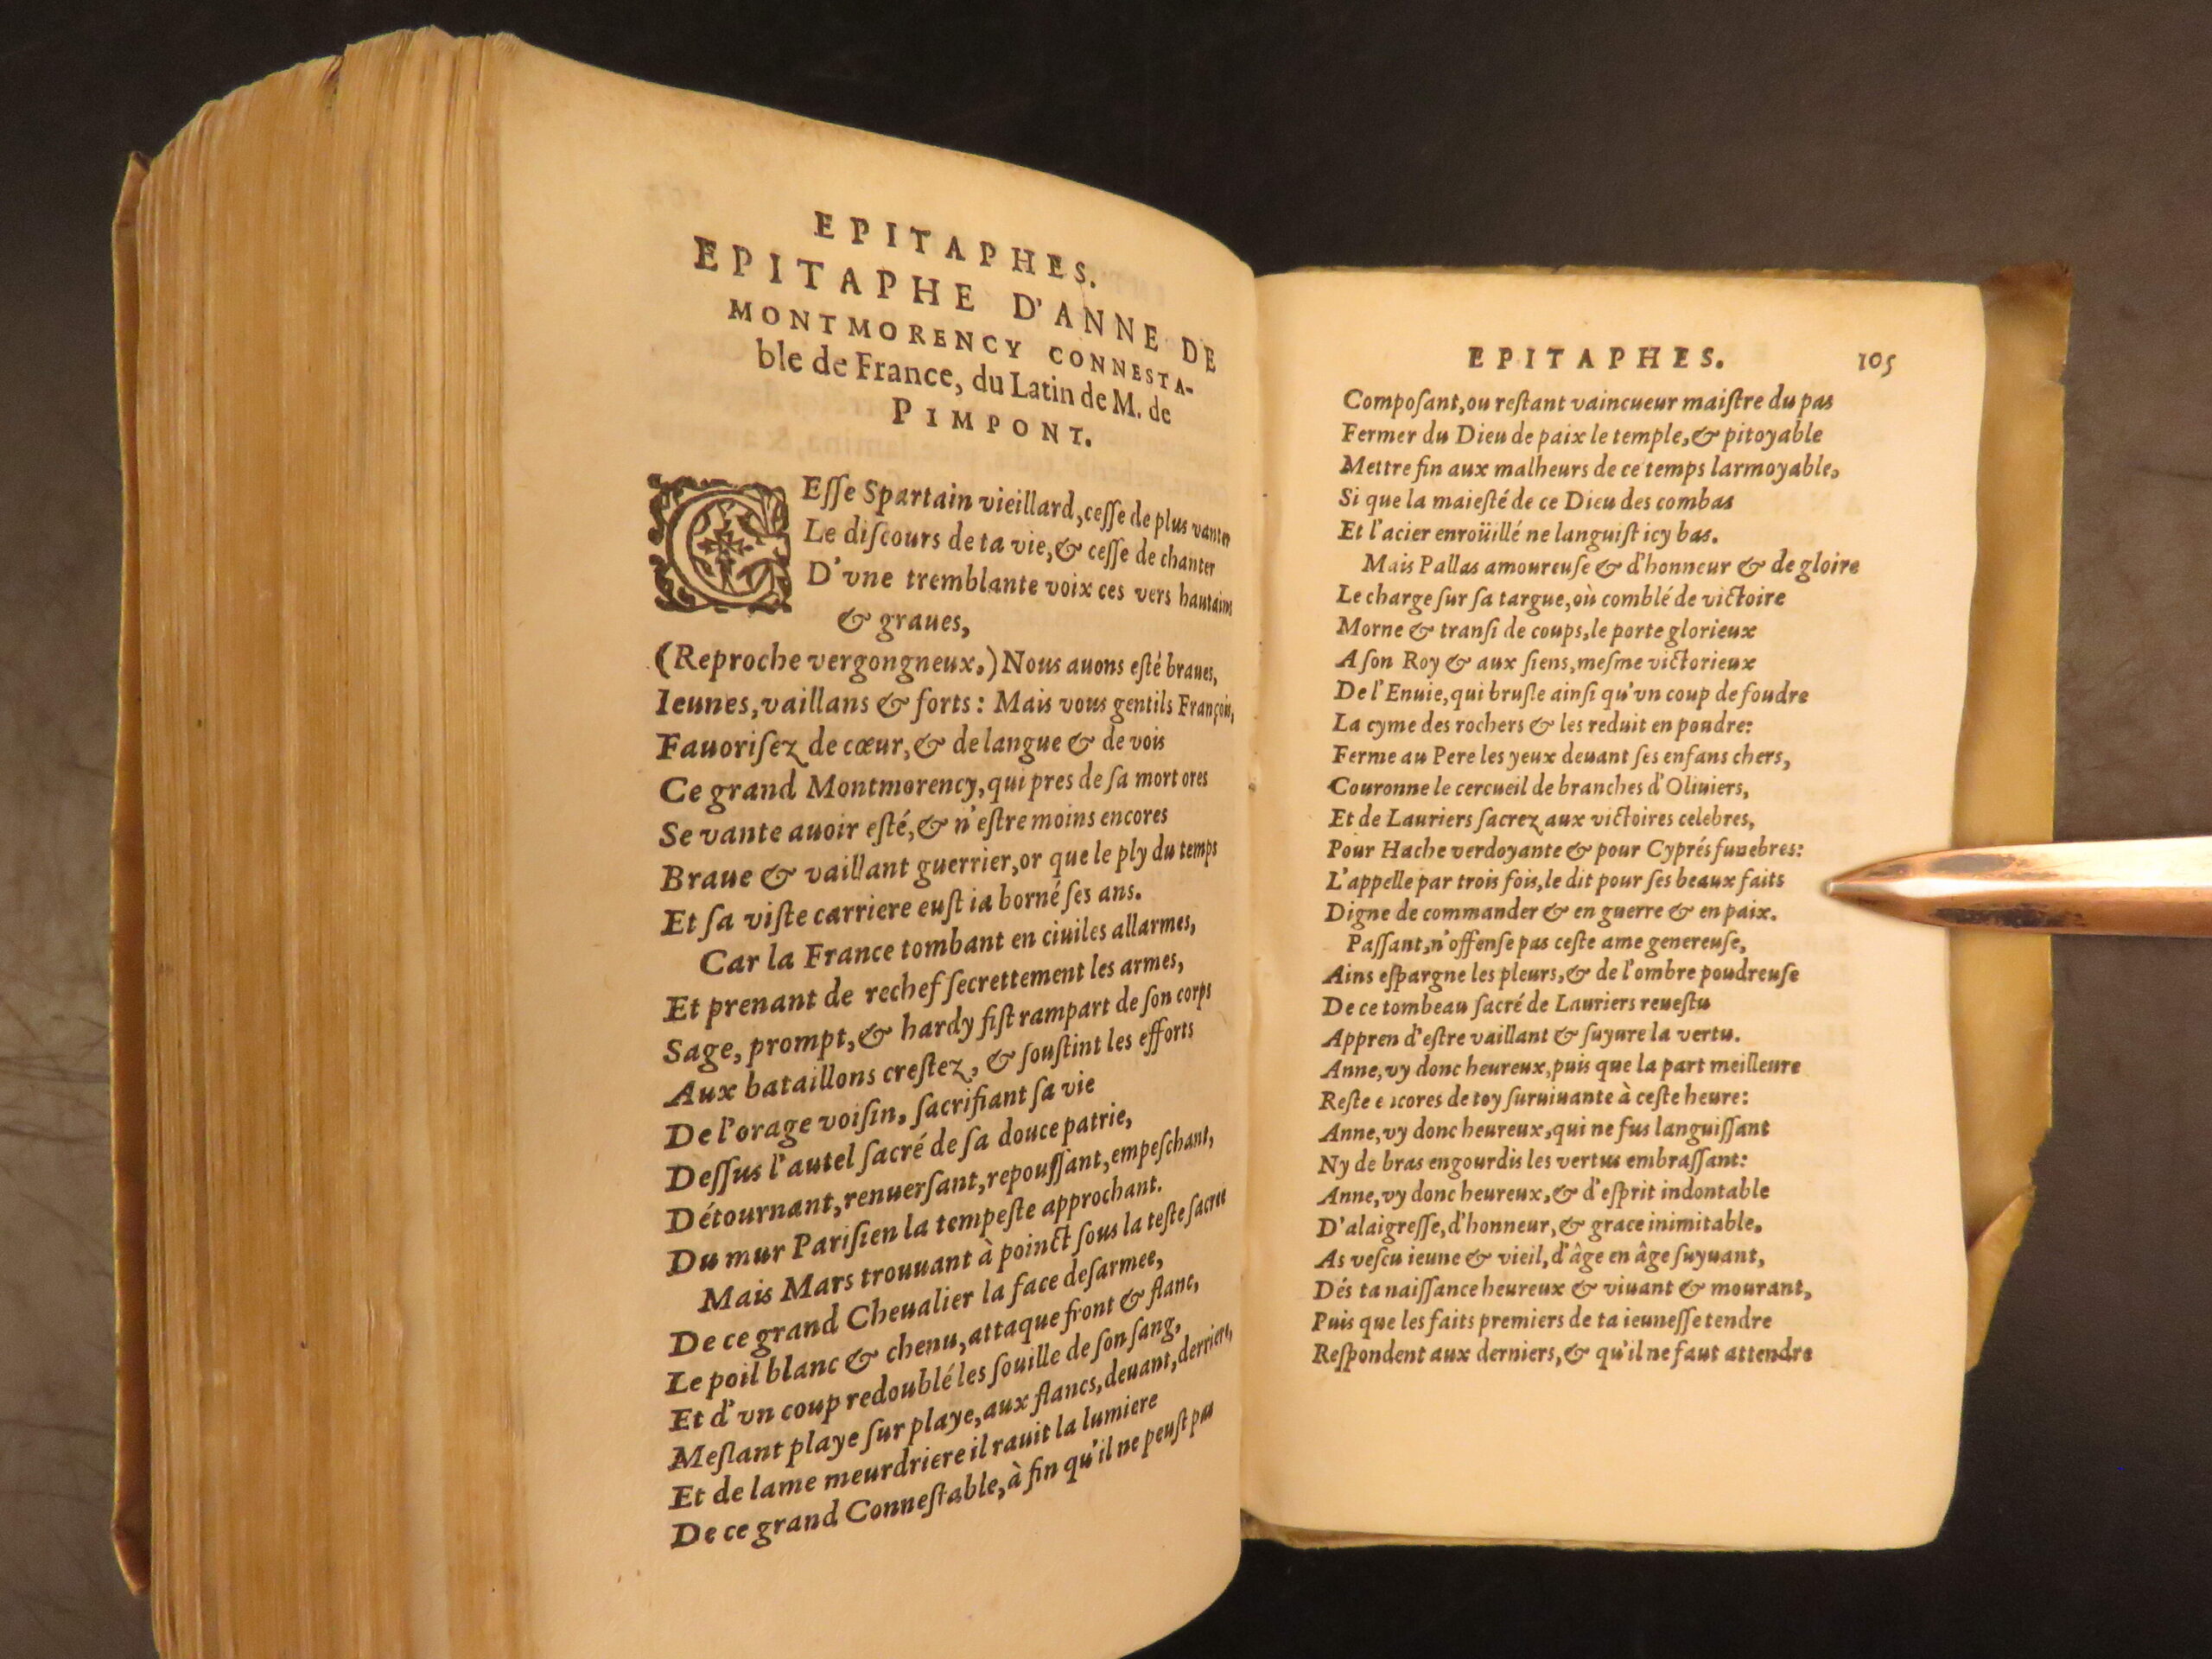 EPITAPHES.
EPITAPHE D'ANNE DE
MONTMORENCY CONNESTA-
ble de France, du Latin de M. de
PIMPONT.
CEſſe Spartain vieillard, ceſſe de plus vanter
Le diſcours de ta vie, & ceſſe de chanter
D'vne tremblante voix ces vers hautains
& graues,
(Reproche vergongneux,) Nous auons eſté braues,
Ieunes, vaillans & forts: Mais vous gentils François,
Fauoriſez de cœur, & de langue & de vois
Ce grand Montmorency, qui pres de ſa mort ores
Se vante auoir eſté, & n'eſtre moins encores
Braue & vaillant guerrier, or que le ply du temps
Et ſa viſte carriere euſt ia borné ſes ans.
Car la France tombant en ciuiles allarmes,
Et prenant de rechef ſecrettement les armes,
Sage, prompt, & hardy fiſt rampart de ſon corps
Aux bataillons creſtez, & ſouſtint les efforts
De l'orage voiſin, ſacrifiant ſa vie
Deſſus l'autel ſacré de ſa douce patrie,
Détournant, renuerſant, repouſſant, empeſchant,
Du mur Pariſien la tempeſte approchant.
Mais Mars trouuant à poinct ſous la teſte ſacree
De ce grand Cheualier la face deſarmee,
Le poil blanc & chenu, attaque front & flanc,
Et d'vn coup redoublé les ſouille de ſon ſang,
Meſlant playe ſur playe, aux flancs, deuant, derriere,
Et de lame meurdriere il rauit la lumiere
De ce grand Conneſtable, à fin qu'il ne peuſt pas
EPITAPHES. 105
Compoſant, ou reſtant vaincueur maiſtre du pas
Fermer du Dieu de paix le temple, & pitoyable
Mettre fin aux malheurs de ce temps larmoyable,
Si que la maieſté de ce Dieu des combas
Et l'acier enroüillé ne languiſt icy bas.
Mais Pallas amoureuſe & d'honneur & de gloire
Le charge ſur ſa targue, où comblé de victoire
Morne & tranſi de coups, le porte glorieux
A ſon Roy & aux ſiens, meſme victorieux
De l'Enuie, qui bruſle ainſi qu'vn coup de foudre
La cyme des rochers & les reduit en poudre:
Ferme au Pere les yeux deuant ſes enfans chers,
Couronne le cercueil de branches d'Oliuiers,
Et de Lauriers ſacrez aux victoires celebres,
Pour Hache verdoyante & pour Cyprés funebres:
L'appelle par trois fois, le dit pour ſes beaux faits
Digne de commander & en guerre & en paix.
Paſſant, n'offenſe pas ceſte ame genereuſe,
Ains eſpargne les pleurs, & de l'ombre poudreuſe
De ce tombeau ſacré de Lauriers reueſtu
Appren d'eſtre vaillant & ſuyure la vertu.
Anne, vy donc heureux, puis que la part meilleure
Reſte encores de toy ſuruiuante à ceſte heure:
Anne, vy donc heureux, qui ne fus languiſſant
Ny de bras engourdis les vertus embraſſant:
Anne, vy donc heureux, & d'eſprit indontable
D'alaigreſſe, d'honneur, & grace inimitable,
As veſcu ieune & vieil, d'âge en âge ſuyuant,
Dés ta naiſſance heureux & viuant & mourant,
Puis que les faits premiers de ta ieuneſſe tendre
Reſpondent aux derniers, & qu'il ne faut attendre